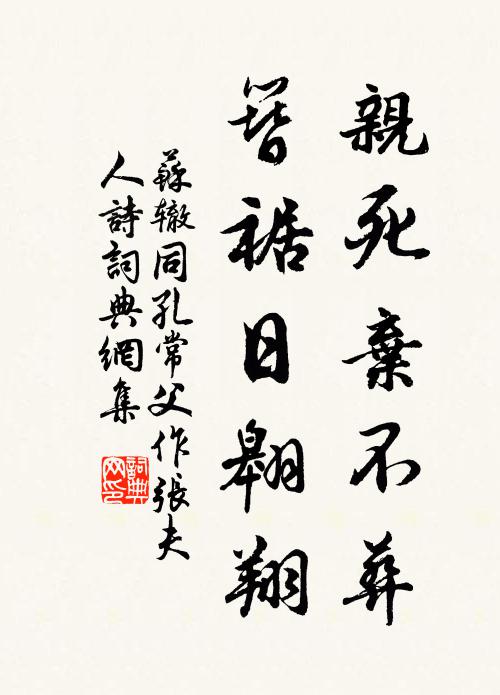 親死棄不葬
簪裾日翱翔
蘇辙同孔常父作張夫
人詩詞典網集
詞典网印